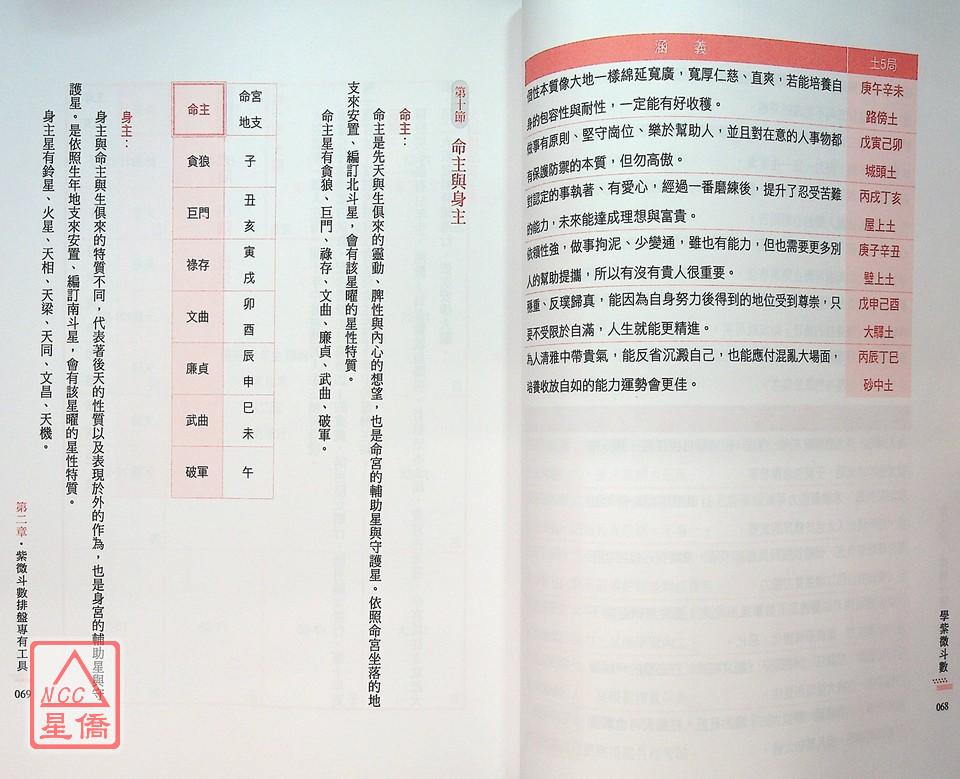 涵 義
土5局
個性本質像大地一樣綿延寬廣，寬厚仁慈、直爽，若能培養自
身的包容性與耐性，一定能有好收穫。
庚午辛未
路傍土
做事有原則、堅守崗位、樂於幫助人，並且對在意的人事物都
有保護防禦的本質，但勿高傲。
戊寅己卯
城頭土
對認定的事執著、有愛心，經過一番磨練後，提升了忍受苦難
的能力，未來能達成理想與富貴。
丙戌丁亥
屋上土
依賴性強，做事拘泥、少變通，雖也有能力，但也需要更多別
人的幫助提攜，所以有沒有貴人很重要。
庚子辛丑
壁上土
穩重、反璞歸真，能因為自身努力後得到的地位受到尊崇，只
要不受限於自滿，人生就能更精進。
戊申己酉
大驛土
為人清雅中帶貴氣，能反省沉澱自己，也能應付混亂大場面，
培養收放自如的能力運勢會更佳。
丙辰丁巳
砂中土
學紫微斗數
068
第十節 命主與身主
命主：
命主是先天與生俱來的靈動、脾性與內心的想望，也是命宮的輔助星與守護星。依照命宮坐落的地
支來安置、編訂北斗星，會有該星曜的星性特質。
命主星有貪狼、巨門、祿存、文曲、廉貞、武曲、破軍。
命宮地支
命主
子
貪狼
丑 亥
巨門
寅 戌
祿存
卯 酉
文曲
辰 申
廉貞
巳 未
武曲
午
破軍
身主：
身主與命主與生俱來的特質不同，代表著後天的性質以及表現於外的作為，也是身宮的輔助星與守
護星。是依照生年地支來安置、編訂南斗星，會有該星曜的星性特質。
身主星有鈴星、火星、天相、天梁、天同、文昌、天機。
第二章・紫微斗數排盤專有工具
069
NCC
星僑